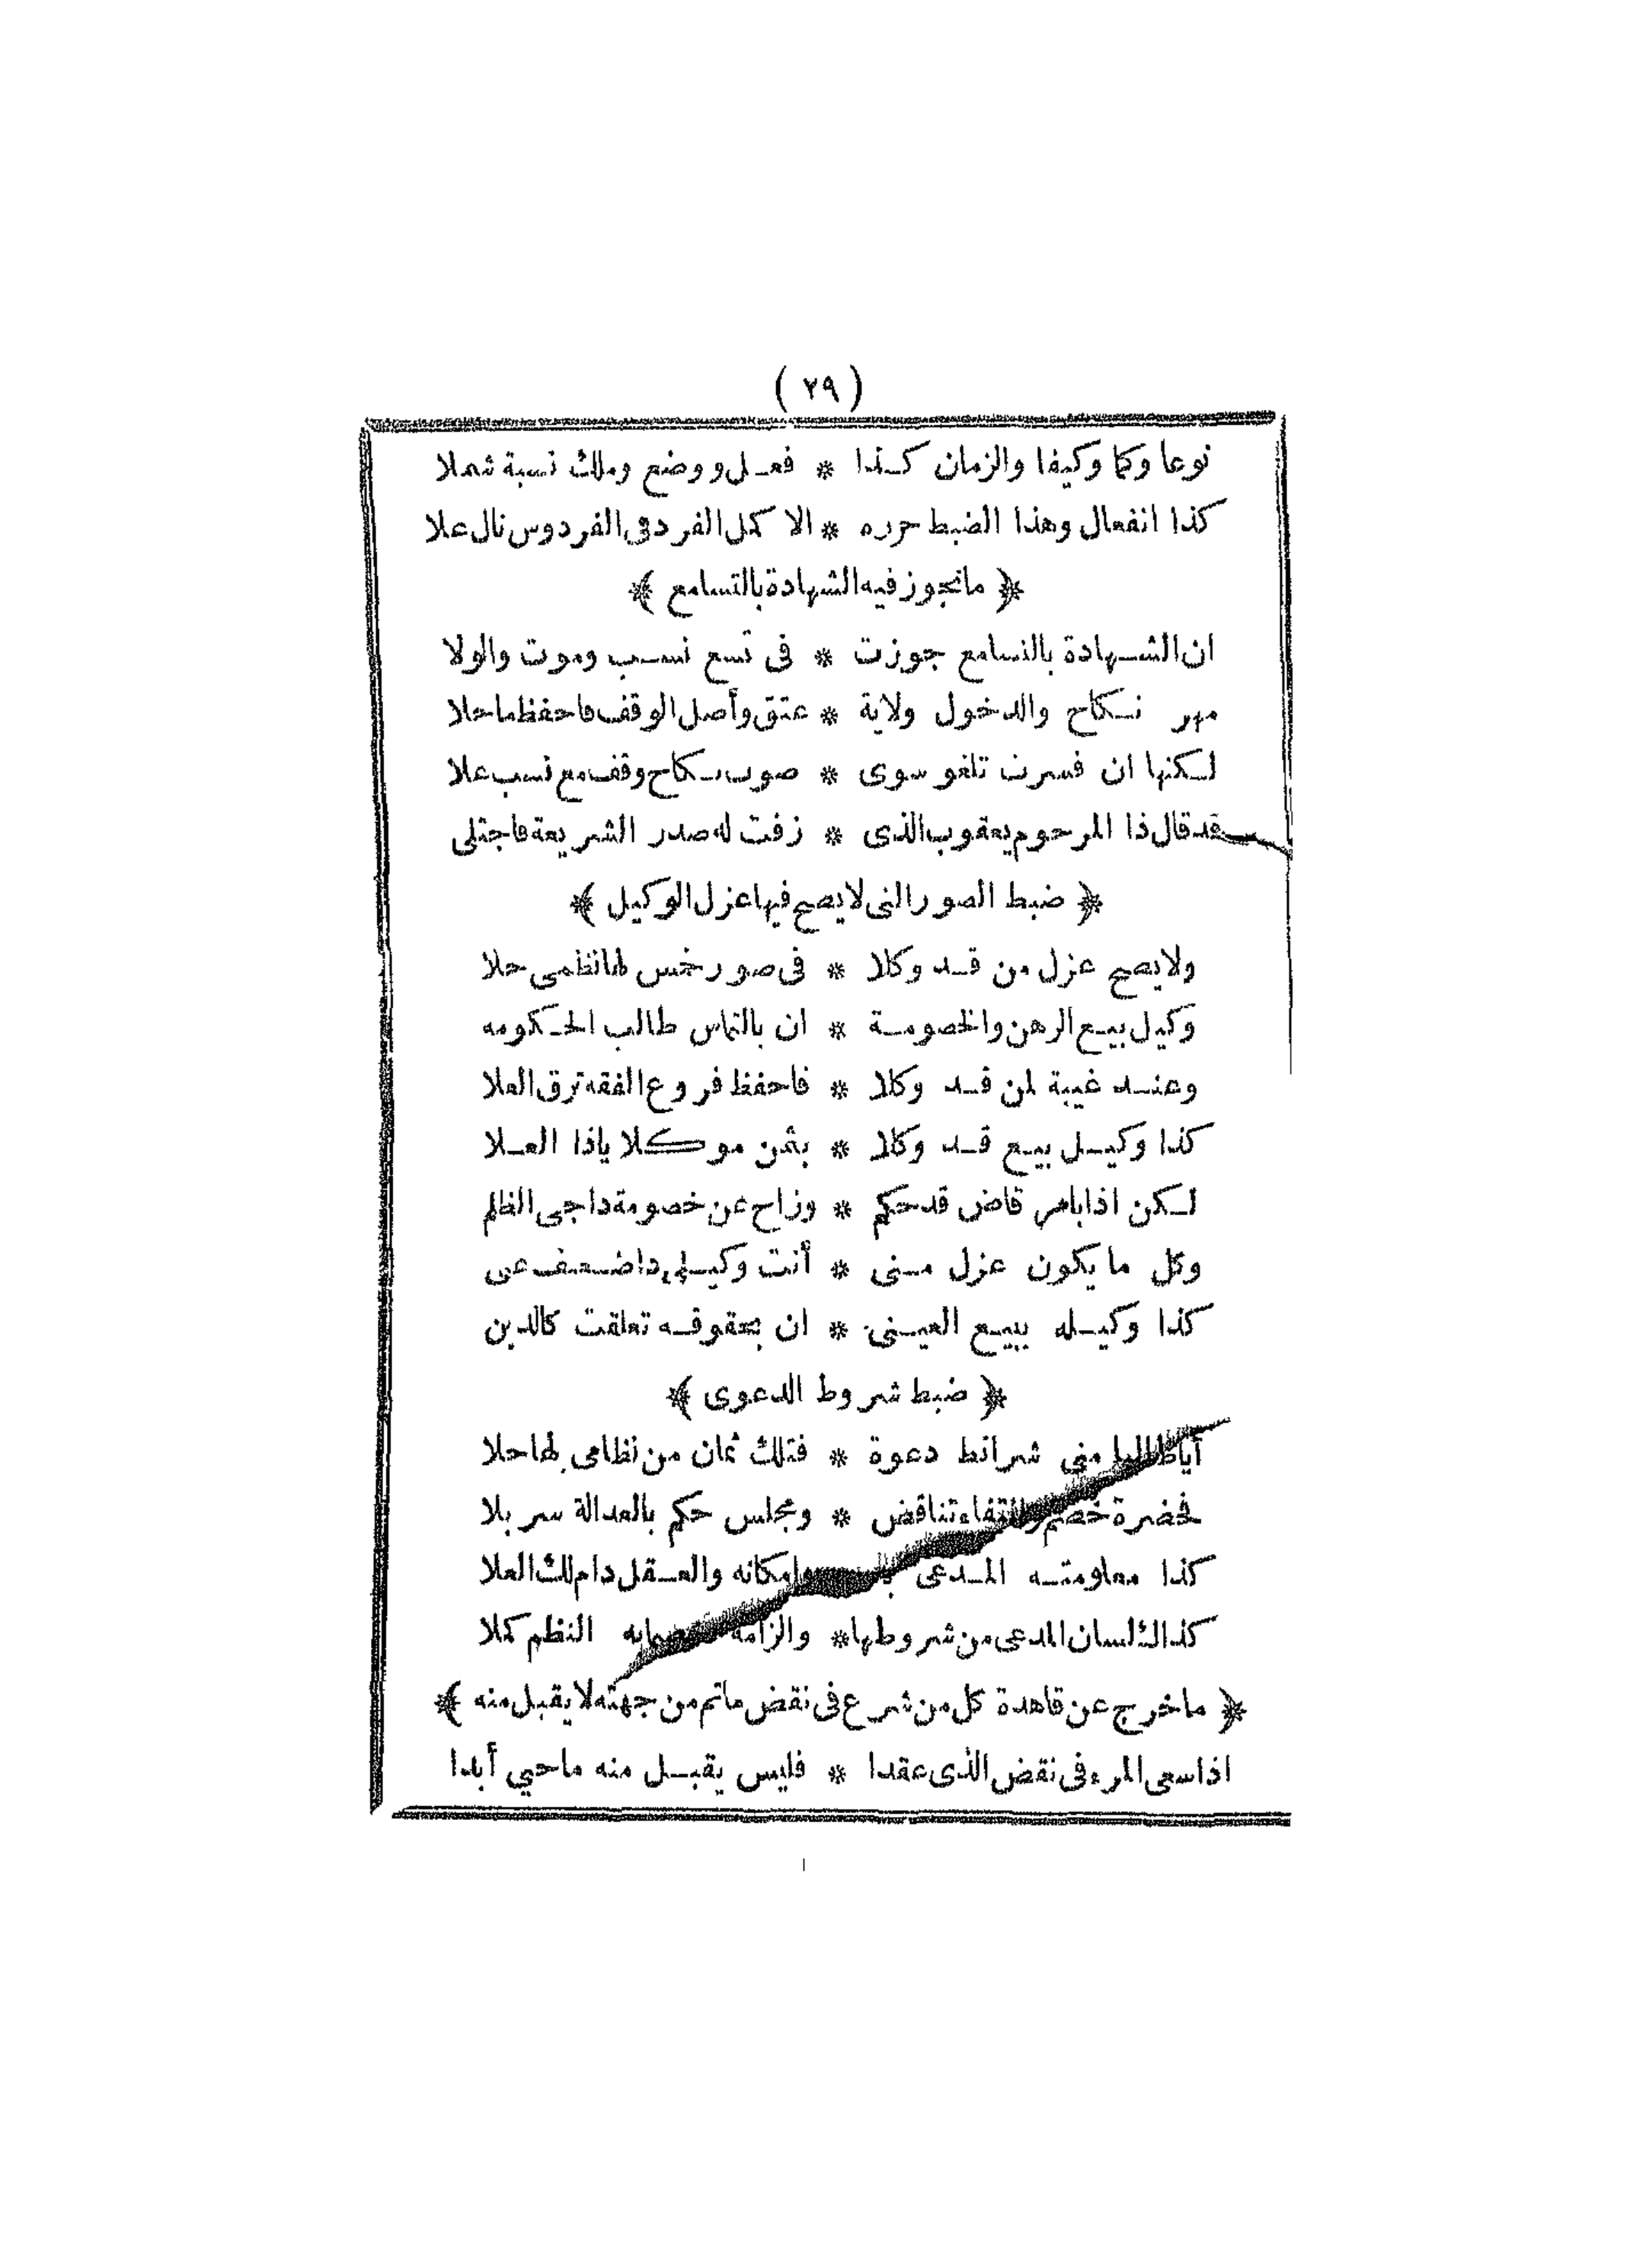 ( ٢٩ )
نوعا وكما وكيفا والزمان كذا * فعل ووضع وملك نسبة شملا
كذا انفعال وهذا الضبط حرره * الا كمل الفرد فى الفردوس نال علا
﴿ ما تجوز فيه الشهادة بالتسامع ﴾
ان الشهادة بالتسامع جوزت * فى تسع نسب وموت والولا
مهر نكاح والدخول ولاية * عتق وأصل الوقف فاحفظ ما حلا
لكنها ان فسرت تلغو سوى * نكاح وقف مع نسب علا
قد قال ذا المرحوم يعقوب الذى * زفت له صدر الشريعة فاجتلى
﴿ ضبط الصور التى لا يصح فيها عزل الوكيل ﴾
ولا يصح عزل من قد وكلا * فى صور خمس لها نظمى حلا
وكيل بيع الرهن والخصومة * ان بالتماس طالب الحكومه
وعند غيبة لمن قد وكلا * فاحفظ فروع الفقه ترق العلا
كذا وكيل بيع قد وكلا * بثمن موكلا ياذا العلا
لكن اذا بامر قاض قد حكم * وزاح عن خصومة داجى الظلم
وكل ما يكون عزل منى * أنت وكيلى دا عنى
كذا وكيله ببيع العينى * ان بحقوقه تعلقت كالدين
﴿ ضبط شروط الدعوى ﴾
أيا طالبا منى شرائط دعوة * فتلك ثمان من نظامى لها حلا
فحضرة خصم وانتفاء تناقض * ومجلس حكم بالعدالة سربلا
كذا معلومته المدعى وامكانه والعقل دام لك العلا
كذا لسان المدعى من شروطها * والزامه النظم كملا
﴿ ما خرج عن قاعدة كل من شرع فى نقض ما تم من جهته لا يقبل منه ﴾
اذا سعى المرء فى نقض الذى عقدا * فليس يقبل منه ما حيي أبدا